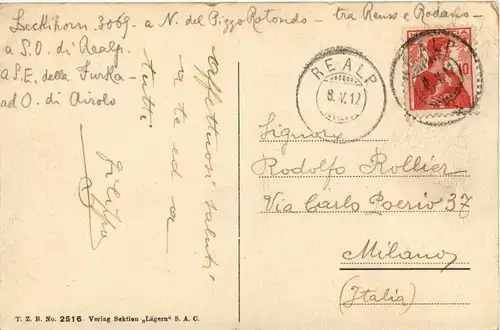 Lecklihorn 3069 - a N. del Pizzo Rotondo - tra Reuss e Rodano -
a S.O. di Realp.
a S.E. della Furka -
ad O. di Airolo
Affettuosi saluti
a te ed a
tutti
REALP
8.V.12
HELVETIA
10
Signor
Rodolfo Rollier
Via Carlo Poerio 37
Milano
(Italia)
T. Z. B. No. 2516. Verlag Sektion „Lägern" S. A. C.